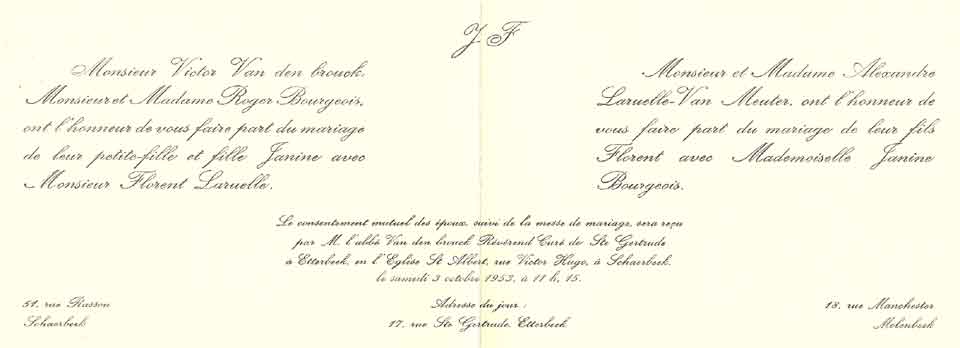 J F
Monsieur Victor Van den brouck.
Monsieur et Madame Roger Bourgeois,
ont l'honneur de vous faire part du mariage
de leur petite-fille et fille Janine avec
Monsieur Florent Laruelle.
Monsieur et Madame Alexandre
Laruelle-Van Meuter, ont l'honneur de
vous faire part du mariage de leur fils
Florent avec Mademoiselle Janine
Bourgeois.
Le consentement mutuel des époux, suivi de la messe de mariage, sera reçu
par M. l'abbé Van den brouck Révérend Curé de Ste Gertrude
à Etterbeek, en l'Eglise St Albert, rue Victor Hugo, à Schaerbeek.
le samedi 3 octobre 1953, à 11 h. 15.
51, rue Rasson
Schaerbeek
Adresse du jour :
17, rue Ste Gertrude, Etterbeek
18, rue Manchester
Molenbeek